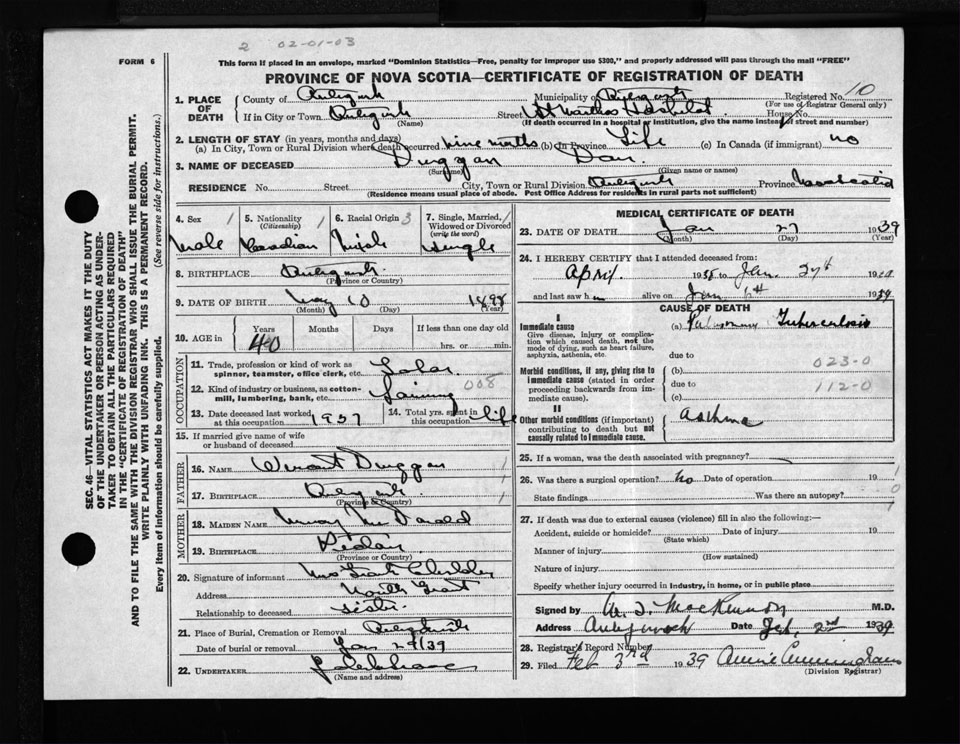 2 02-01-03
FORM 6
This form if placed in an envelope, marked "Dominion Statistics—Free, penalty for improper use $300," and properly addressed will pass through the mail "FREE"
PROVINCE OF NOVA SCOTIA—CERTIFICATE OF REGISTRATION OF DEATH
SEC. 46—VITAL STATISTICS ACT MAKES IT THE DUTY OF THE UNDERTAKER OR PERSON ACTING AS UNDERTAKER TO OBTAIN ALL THE PARTICULARS REQUIRED IN THE "CERTIFICATE OF REGISTRATION OF DEATH" AND TO FILE THE SAME WITH THE DIVISION REGISTRAR WHO SHALL ISSUE THE BURIAL PERMIT.
WRITE PLAINLY WITH UNFADING INK. THIS IS A PERMANENT RECORD.
Every item of information should be carefully supplied. (See reverse side for instructions.)
1. PLACE OF DEATH County of Antigonish Municipality of Antigonish Registered No. 10
(For use of Registrar General only)
If in City or Town Antigonish Street St Martha Hospital House No.
(Name) (If death occurred in a hospital or institution, give the name instead of street and number)
2. LENGTH OF STAY (in years, months and days)
(a) In City, Town or Rural Division where death occurred nine months (b) In Province Life (c) In Canada (if immigrant) no
3. NAME OF DECEASED Duggan Dan
(Surname) (Given name or names)
RESIDENCE No. Street City, Town or Rural Division Antigonish Province Nova Scotia
(Residence means usual place of abode. Post Office Address for residents in rural parts not sufficient)
4. Sex 1 Male
5. Nationality (Citizenship) 1 Canadian
6. Racial Origin 3
7. Single, Married, Widowed or Divorced (write the word) 1 Single
8. BIRTHPLACE Antigonish
(Province or Country)
9. DATE OF BIRTH May 10 1898
(Month) (Day) (Year)
10. AGE in Years 40 Months Days If less than one day old hrs. or min.
OCCUPATION
11. Trade, profession or kind of work as spinner, teamster, office clerk, etc.
12. Kind of industry or business, as cotton-mill, lumbering, bank, etc. 008
13. Date deceased last worked at this occupation 1937
14. Total yrs. spent in this occupation life
15. If married give name of wife or husband of deceased
FATHER
16. NAME Duggan
17. BIRTHPLACE Antigonish
(Province or Country)
MOTHER
18. MAIDEN NAME
19. BIRTHPLACE
(Province or Country)
20. Signature of informant
Address North Grant
Relationship to deceased sister
21. Place of Burial, Cremation or Removal Antigonish
Date of burial or removal Jan 29/39
22. UNDERTAKER
(Name and address)
MEDICAL CERTIFICATE OF DEATH
23. DATE OF DEATH Jan 27 1939
(Month) (Day) (Year)
24. I HEREBY CERTIFY that I attended deceased from:
April 1938 to Jan. 27th 19
and last saw h alive on Jan 1939
CAUSE OF DEATH
I
Immediate cause (a) Pulmonary Tuberculosis
Give disease, injury or complication which caused death, not the mode of dying, such as heart failure, asphyxia, asthenia, etc.
due to
023-0
Morbid conditions, if any, giving rise to immediate cause (stated in order proceeding backwards from immediate cause).
(b)
due to 112-0
(c)
II
Other morbid conditions (if important) contributing to death but not causally related to immediate cause. Asthma
25. If a woman, was the death associated with pregnancy?
26. Was there a surgical operation? No Date of operation 19
State findings Was there an autopsy?
27. If death was due to external causes (violence) fill in also the following:—
Accident, suicide or homicide? Date of injury 19
(State which)
Manner of injury
(How sustained)
Nature of injury
Specify whether injury occurred in industry, in home, or in public place
Signed by MacKinnon M.D.
Address Antigonish Date Feb. 2nd 1939
28. Registrar's Record Number
29. Filed Feb 3rd 1939 Annie Cunningham
(Division Registrar)